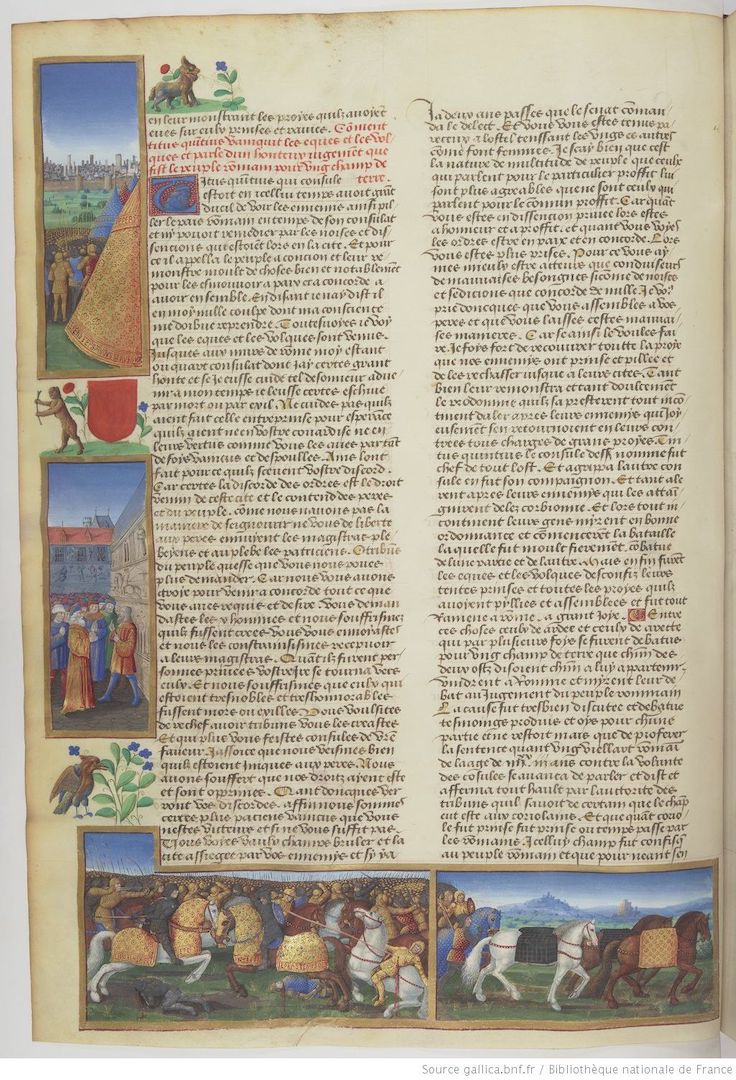 en leur monstrant les proyes quilz avoyēt
eues sur eulx prinses et ravies. Cōment
titus quintius vainquit les eques et les vol
ques et parle dun honteux iugement que
fist le peuple rōmain pour ung champ de
terre.
Titus quintius qui consule
estoit en icelluy temps avoit grāt
dueil de voir les ennemis ainsi pil
ler le pais rōmain en temps de son consulat
et ny povoit remedier par les noises et dis
sencions qui estoiēt lors en la cite. Et pour
ce il appella le peuple a concion et leur re
monstre moult de choses bien et notablemēt
pour les esmouvoir a paix et a concorde a
avoir ensemble. En disant ie nay dist il
en moy nulle coulpe dont ma conscience
me doibue reprendre. Touteffoyes ie voy
que les eques et les volques sont venus
Jusques aux murs de rōme moy estant
ou quart consulat dont Jay certes grant
honte et se ie eusse cuide tel deshonneur adve
nir a mon temps ie leusse certes eschive
par mort ou par exil. Ne cuides pas quilz
aient fait celle entreprinse pour esperāce
quilz aient ne en vostre couardise ne en
leurs vertus comme vous les avies par tāt
de foys vaincus et despoulles. Ains lont
fait pour ce quilz scevent vostre discord.
Car certes la discord des ordres est le droit
venin de ceste cite et le contend des peres
et du peuple. cōme nous nayons pas la
maniere de seignourir ne vous de liberte
aux peres ennuyent les magistras ple
beyens et au plebe les patriciens. O tribūs
du peuple quesse que vous nous poves
plus demander. Car nous vous avons
ottroye pour venir a concorde tout ce que
vous aves requis et desire. Vous deman
dastes les x hommes et nous souffrismes
quilz fussent crees vous vous ennuyastes
et nous les contraisismes renoncier
a leurs magistras. Quāt ilz furent per
sonnes privees vostre ire se tourna vers
eulx. Et nous souffrismes que ceulx qui
estoient tresnobles et treshonnorables
fussent mors ou exilles. Vous voulsistes
derechef avoir tribuns vous les creastes
Et qui plus vous feistes consules de vr̄e
faveur Jassoice que nous veismes bien
quilz estoient iniques aux peres. Nous
avons souffert que noz droitz ayent este
et sont opprimes. Quant doncques ver
ront voz discordes. affin nous sommes
certes plus paciens vaincus que vous
nestes victeurs et si ne vous suffit pas.
Tous voyes vous les champs bruler et la
cite assieget par voz ennemys et sy ya
Ja deux ans passes que le senat cōman
da le delect. Et vous vous estes tenus pa
receux a lostel tenssant les ungs es autres
cōme font femmes. Je scay bien que cest
la nature de multitude de peuple que ceulx
qui parlent pour le particulier prouffit lui
sont plus agreables que ne sont ceulx qui
parlent pour le cōmin proffit. Car quāt
vous estes en dissencion privee lors estes
a honneur et a proffit. et quant vous voyes
les ordres estre en paix et en concorde. Lors
vous estes plus prises. Pour ce vous ay
mes mieulx estre acteurs que conduiseurs
de mauvaises besongnes si cōme de noises
et sedicions que concorde de nulle. Je vo9
prie doncques que vous assembles a vos
peres et que vous laisses cestes mauvai
ses manieres. Car se ainsi le voules fai
re. Je foys fort de recouvrer toutte la proye
que noz ennemys ont prinse et pillee et
de les rechasser iusque a leurs cites. Tant
bien leur remonstra et tant doulcement
le prodomme quilz sa presterent tout inco
tinēt daler apres leurs ennemys qui joy
eusemēt sen retournoient en leurs con
trees tous charges de grans proyes. Ti
tus quintius le consule dess nomme fut
chef de tout lost. Et agrippa lautre con
sule en fut son compaignon. Et tant ale
rent apres leurs ennemys que les attai
gnirent delez corbionne. Et lors tout in
continent leurs gens myrent en bonne
ordonnance et cōmencerēt la bataille
la quelle fut moult fierement cōbatue
de lune partie et de lautre. Mais en fin furēt
les eques et les volques desconfiz leurs
tentes prinses et toutes les proyes quilz
avoyent pilliees et assemblees et fut tout
Ramene a rōme. a grant Joye. Entre
ces choses ceulx de ardee et ceulx de arecte
qui par plusieurs foys se furent debatus
pour ung champ de terre que chūn des
deux ost disoient chūn a luy apartenir.
vindrent a Romme et myrent leur de
bat au Jugement du peuple rommain
La cause fut tresbien discutee et debatue
tesmoings produis et oys pour chūne
partie et ne restoit mais que de proferer
la sentence quant ung viellart rōmai
de laage de ans contre la volunte
des cōsules se avanca de parler et dist et
afferma tout hault par lautorite des
tribuns quil savoit de certain que le chāp
cut est aux coriolains. Et que quāt corio
le fut prinse fut prinse ou temps passe par
les rōmains Jcelluy champ fut confisq
au peuple rōmain et que pour neant sen
Source gallica.bnf.fr / Bibliothèque nationale de France